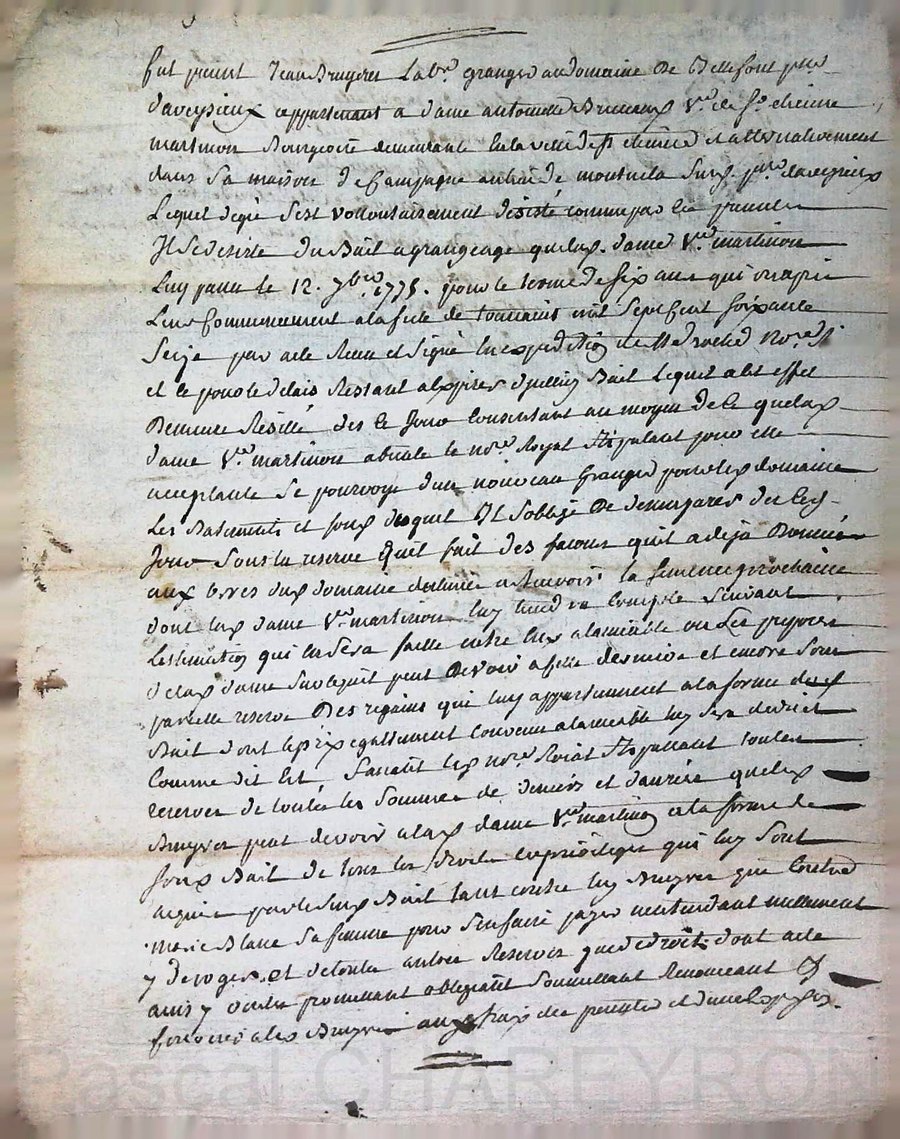 fut present Jean Bruyeres Labr. granger au domaine de Bellefont psse
d'aveysieux appartenant a dame antoinette Vve de Sr. etienne
martinon Bourgeoise demeurante en la ville de St etienne et alternativement
dans sa maison de Campagne au lieu de montuclas susd. psse d'aveysieux
Lequel de gré s'est vollontairement désisté comme par les presentes
Il se desiste du Bail a grangeage que lad. dame Vve martinon
Luy passa le 12. 7bre 1775. pour le terme de six ans qui ont pris
Leur Commencement a la fete de toussaints mil sept Cent soixante
seize par acte Receu et signé en expedition Me Not.
et ce pour le delais Restant a expirer dudit Bail Lequel a cet effet
Demeure Resillé des ce Jour Consentant au moyen de ce que lad.
dame Vve martinon absente le nore. Royal stipulant pour elle
acceptante se pourvoye d'un nouveau Granger pour led. domaine
Les Batiments et fonds duquel Il s'oblige De des ce
Jour sous la reserve qu'il fait des facons qu'il a deja Données
aux terres dud. domaine destinées a recevoir la semence prochaine
dont lad. dame Vve martinon luy tiendra Compte suivant
L'estimation qui en sera faitte entre eux a l'amiable ou Les
de lad. dame sur ce qu'il peut Devoir a et encore sous
pareille reserve Des regains qui luy appartiennent a la forme dud.
Bail dont le prix egallement Convenu a l'amiable luy sera deduit
Comme dit Est faisant led. nore. Roial stipulant toutes
reserves de toutes les sommes de deniers et danrées que led.
Bruyere peut devoir a lad. dame Vve martinon a la forme de
sond. Bail de tous les droits et privileges qui luy sont
acquis par le sud. Bail tant contre luy Bruyere que Contre
marie Blanc sa femme pour s'en faire payer n'entendant nullement
y deroger et de toutes autres Reserves que de droit dont acte
ainsy promettant obligeant soumettant Renonceant &
aled. Bruyere aux frais des presentes et d'une expedition.
Pascal CHAREYRON